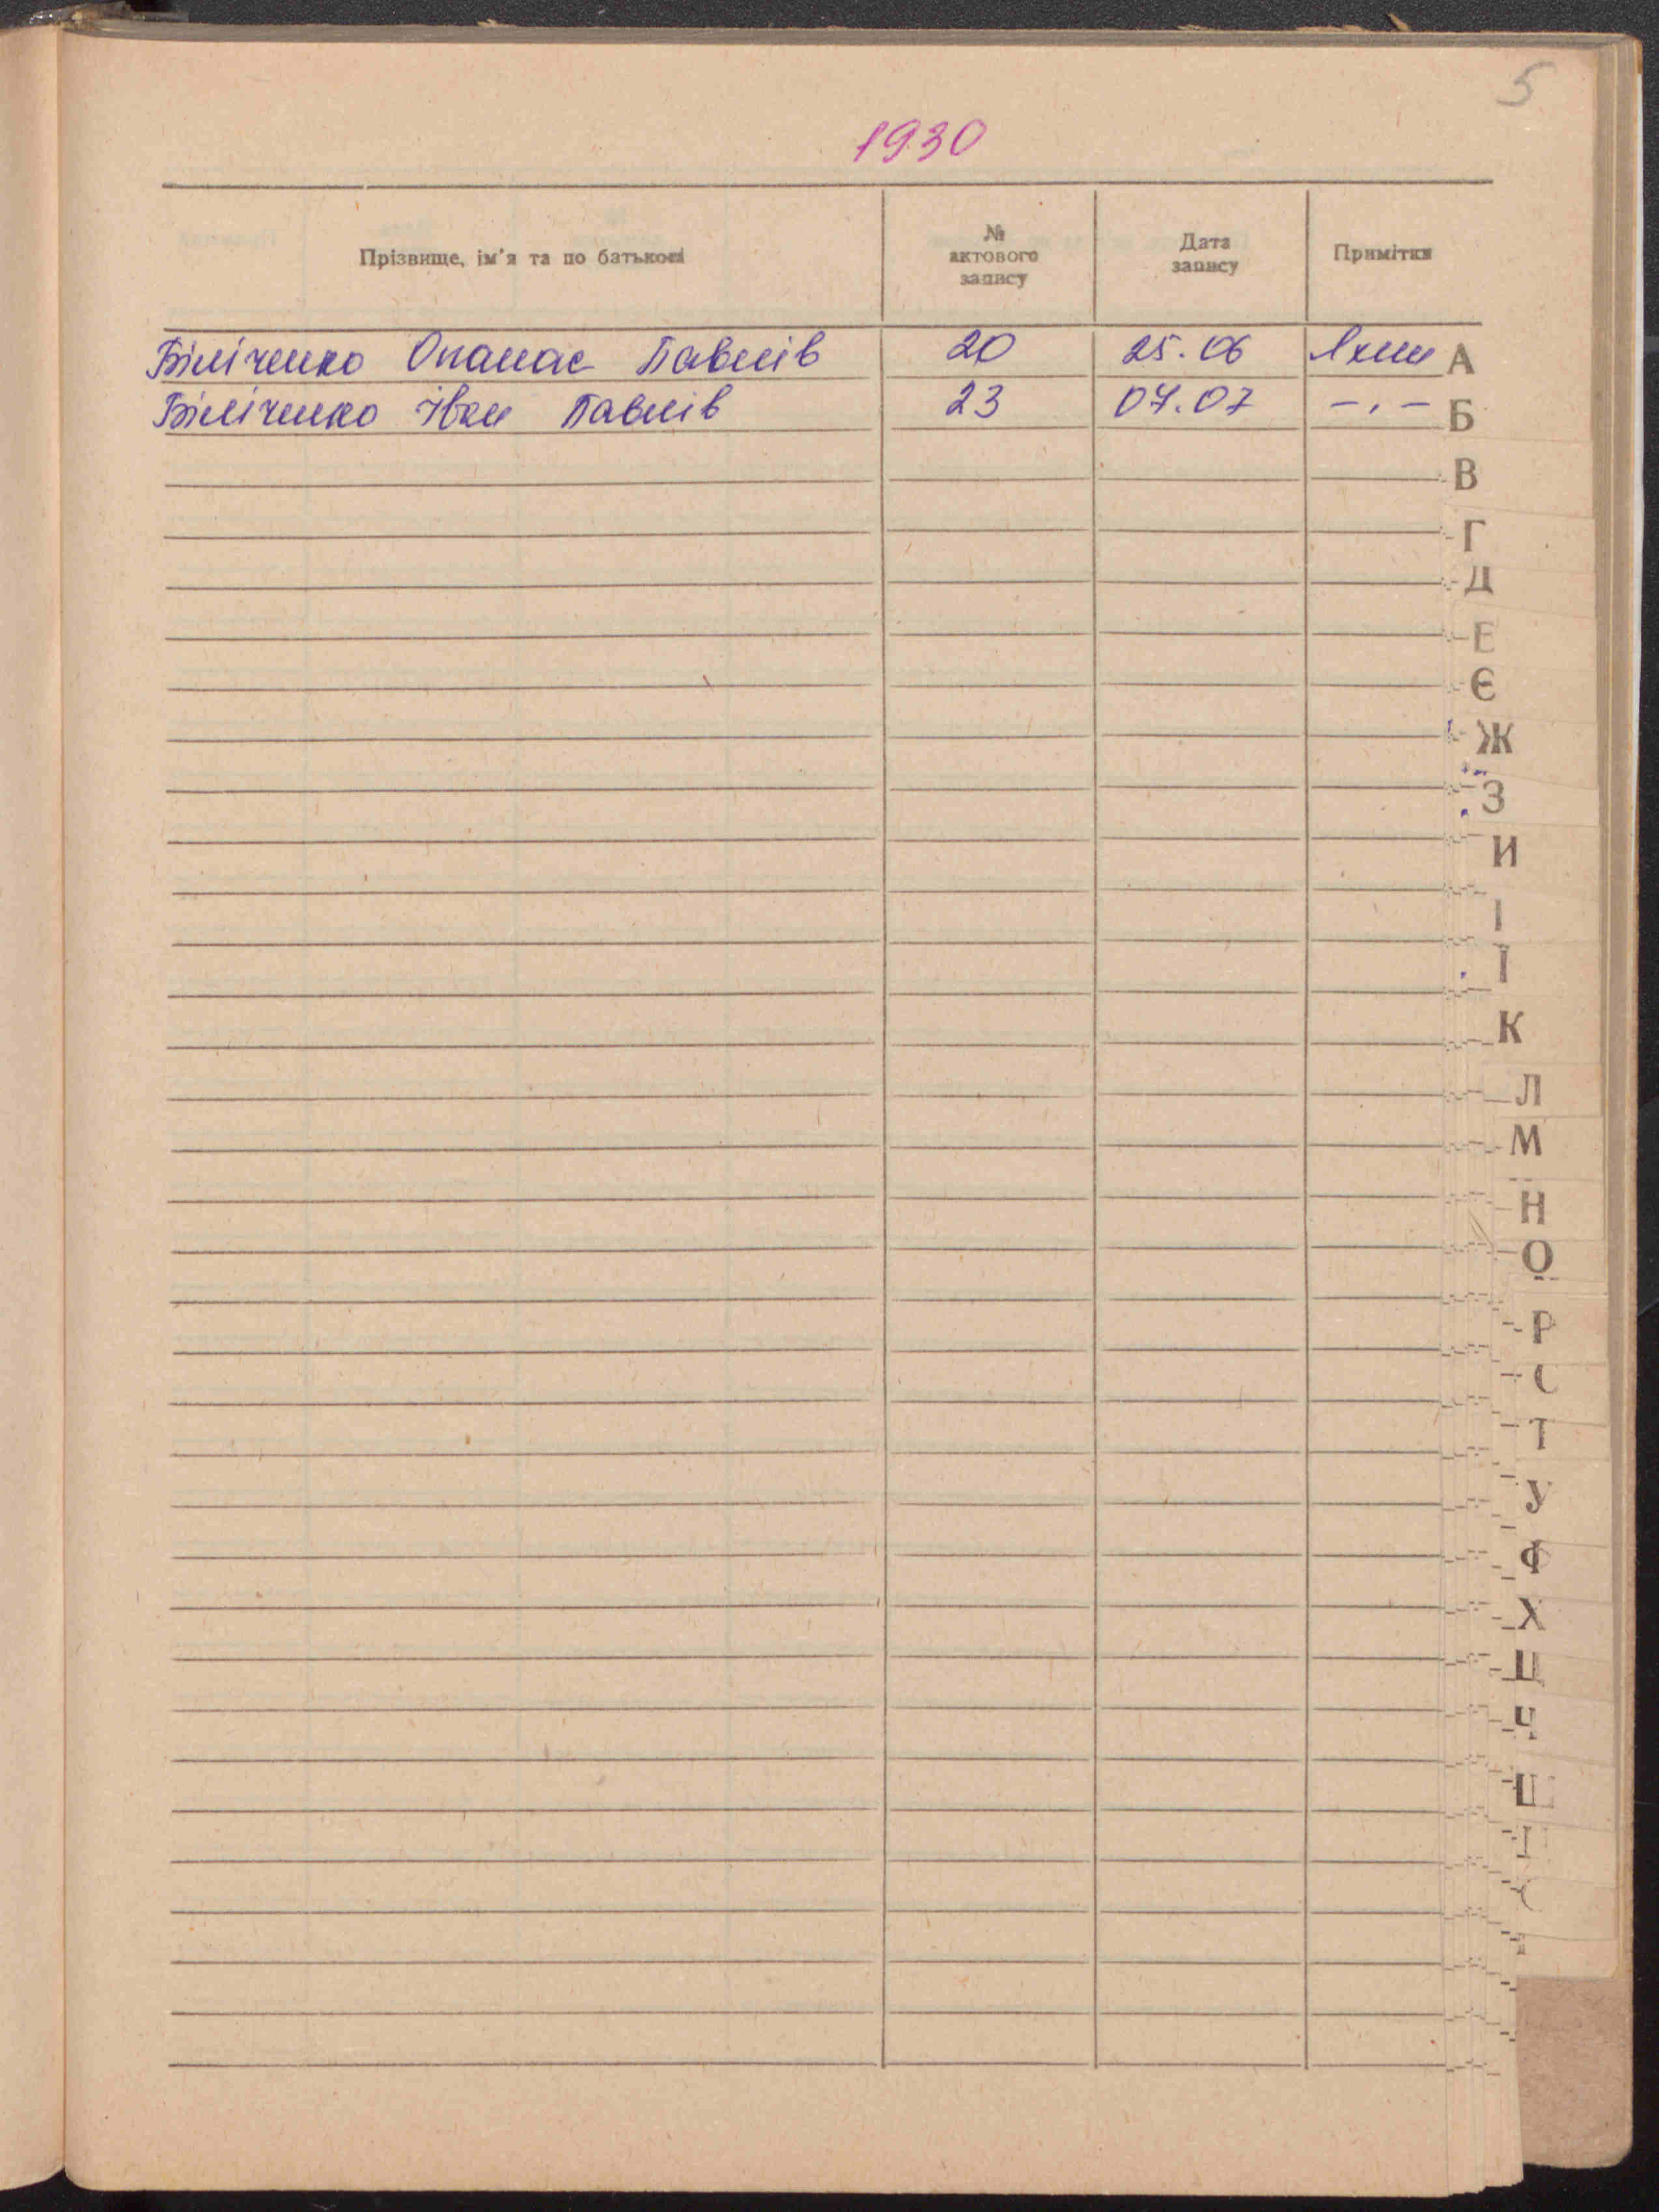 5
1930
Прізвище, ім'я та по батькові
№ актового запису
Дата запису
Примітки
Біліченко Опанас Павлів 20 25.06
Біліченко Іван Павлів 23 07.07 -"-
А
Б
В
Г
Д
Е
Є
Ж
З
И
І
Ї
К
Л
М
Н
О
Р
С
Т
У
Ф
Х
Ц
Ч
Ш